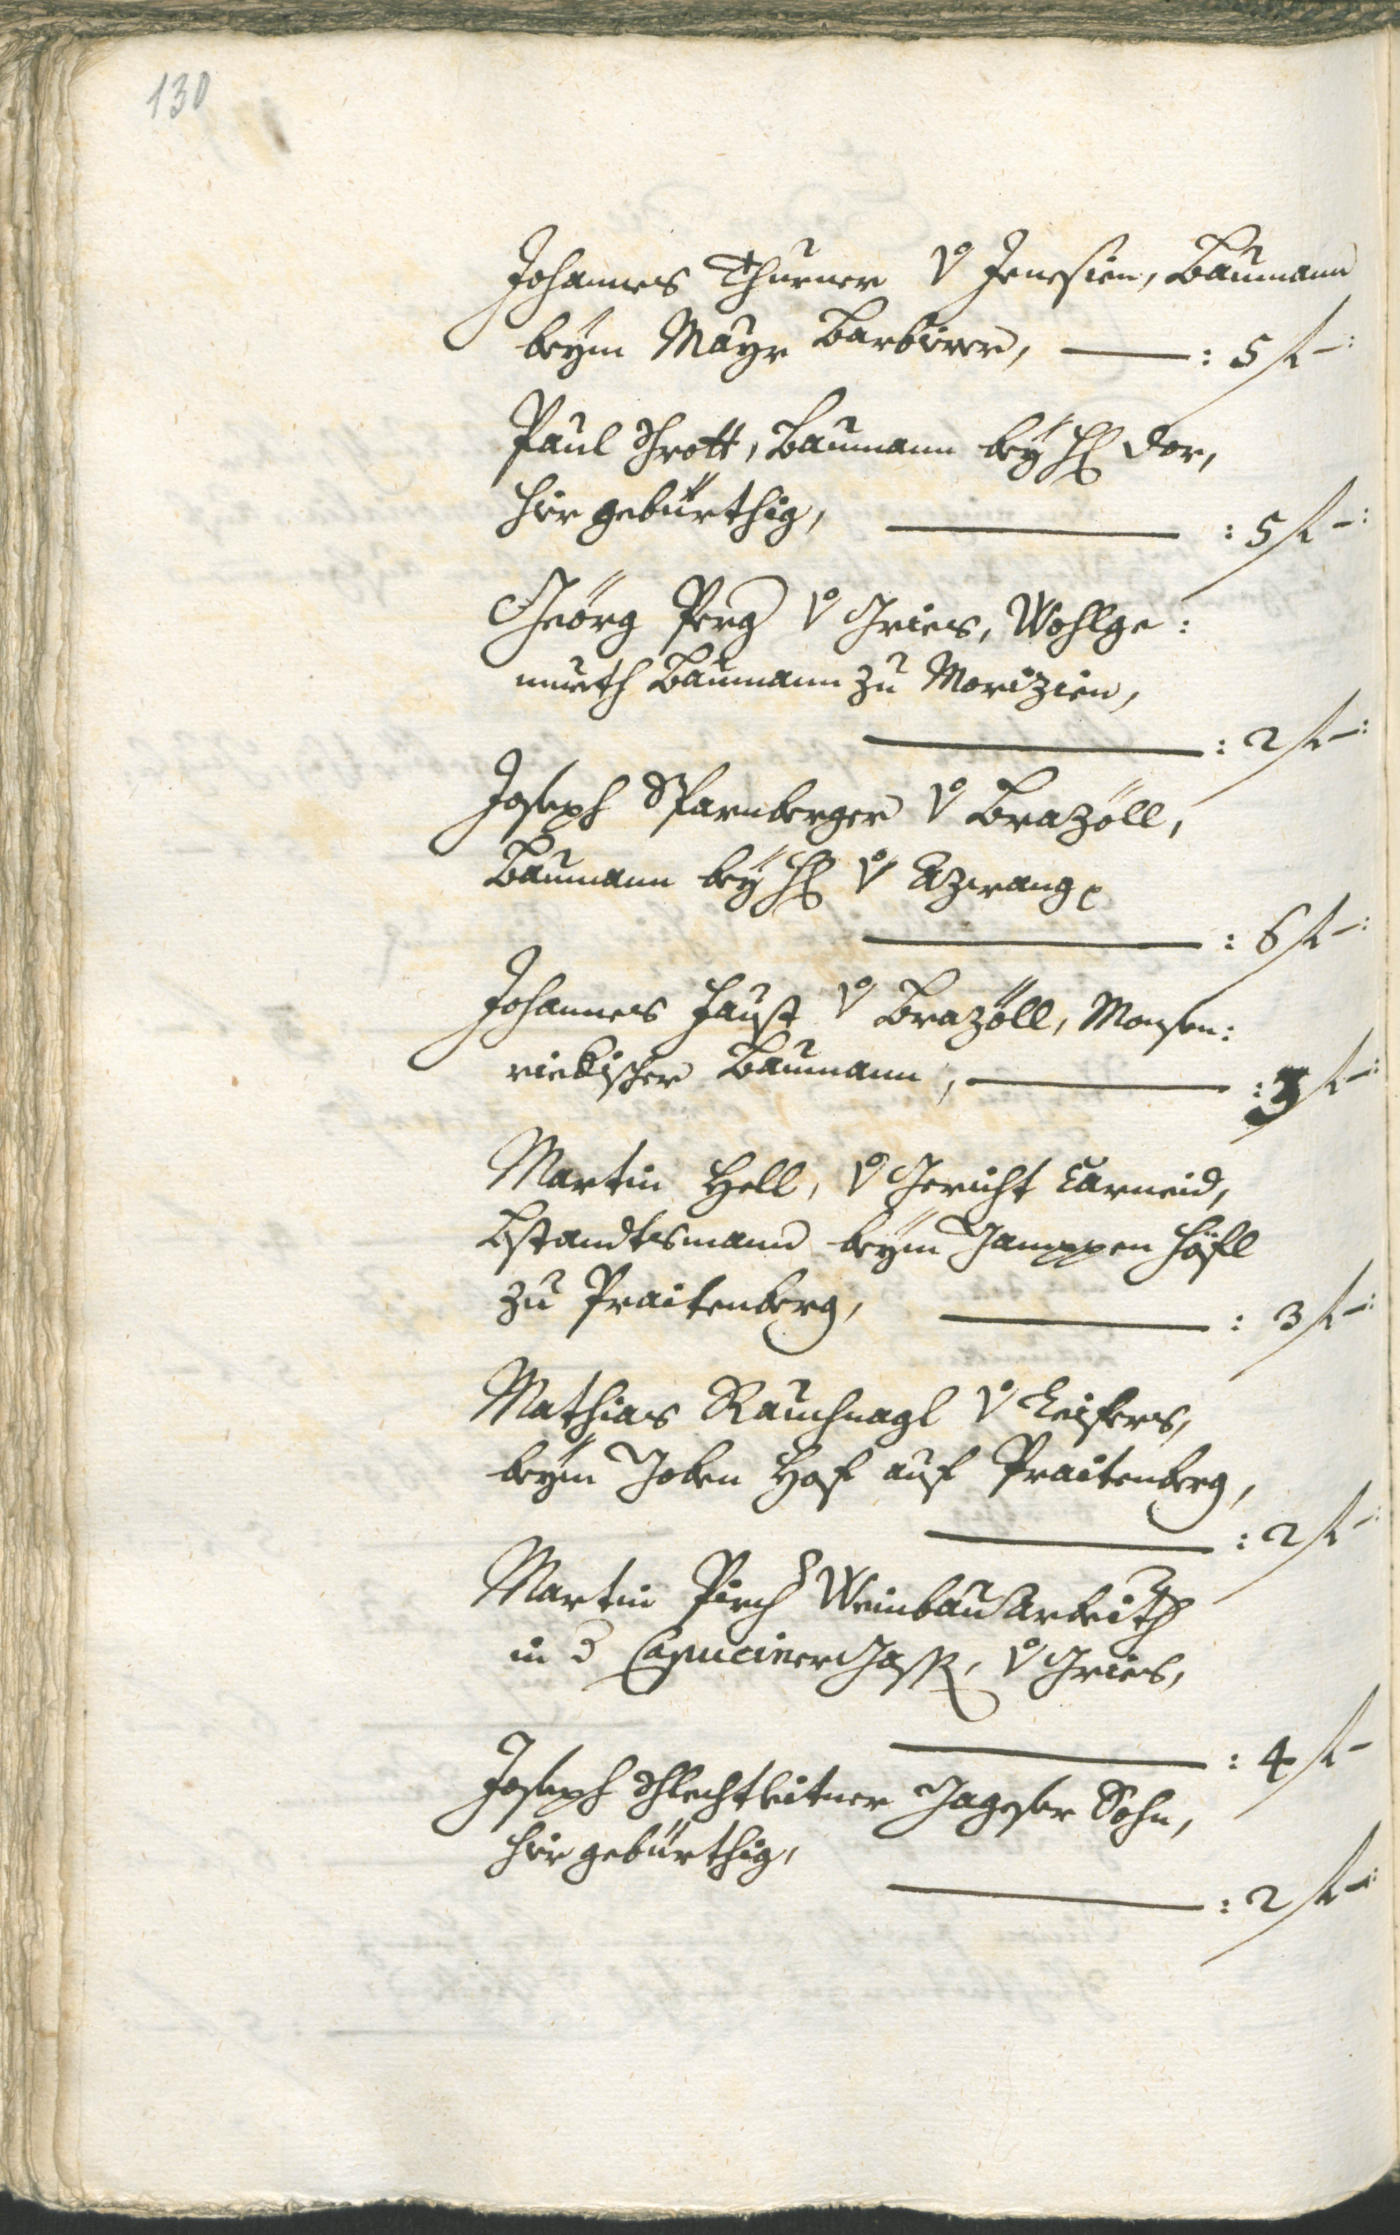 130
Johannes Thurner v Jenesien, Baumann
beÿm Maÿr Barbierer, : 5 f -:
Paul Schrott, Baumann beÿ H
hier gebürthig, : 5 f -:
Geörg Perg v Gries, Wohlge:
mueth Baumann zu Morizien,
: 2 f -:
Joseph Sparnberger v Brazöll,
Baumann beÿ H v Azwang
: 6 f -:
Johannes Faust v Brazöll, Menßen:
riekischer Baumann, : 3 f -:
Martin Hell, v Gericht Carneid,
Bstandtsmann beÿm Jamppen Höfl
zu Praitenberg, : 3 f -:
Mathias Rauchnagl v Leifers,
beÿm Joben Hof auf Praitenberg,
: 2 f -:
Martin Pirch Weinbau Arbeith
in d Capuciner Gaß, v Gries,
: 4 f -
Joseph Schlechtleitner Jageser Sohn,
hier gebürthig,
: 2 f -: